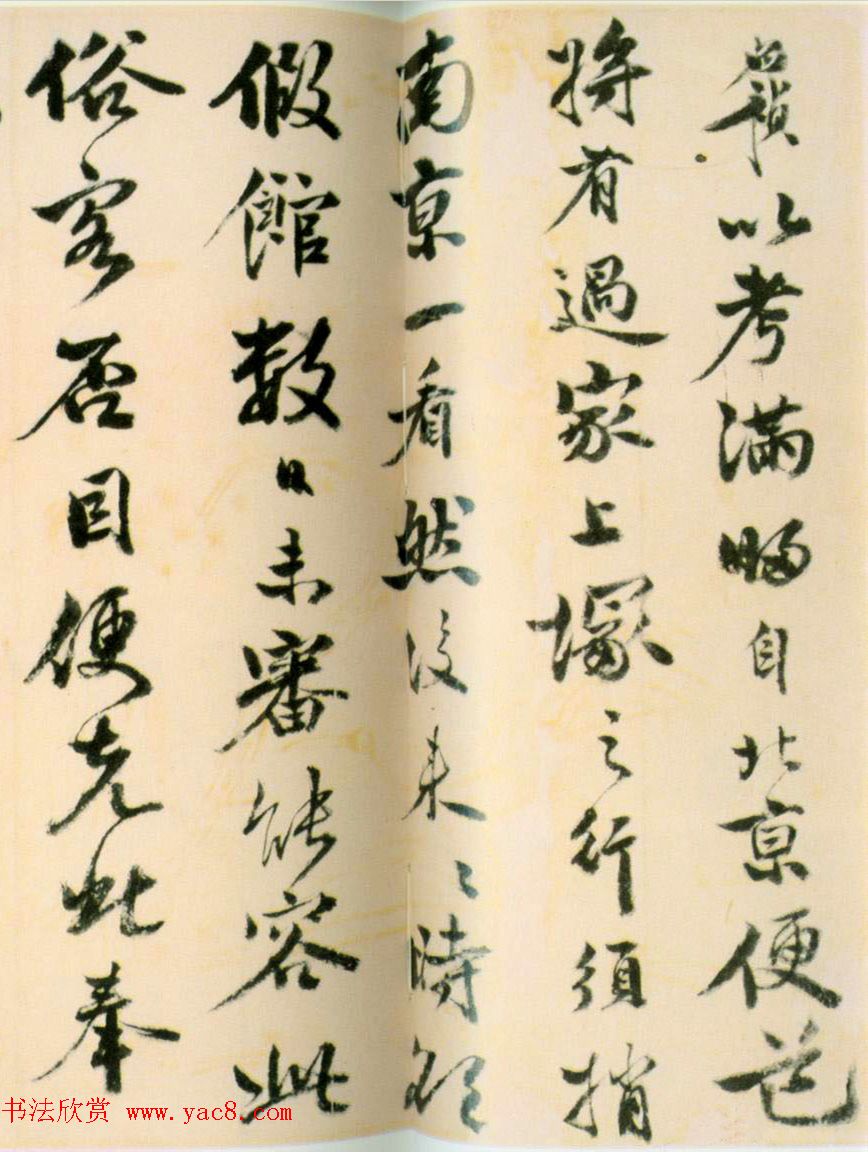 以考滿歸自北京便道
將有過家上塚之行須捎
南京一看然後來〻時欲
假館數日未審能容此
俗客否因便先此奉
书法欣赏 www.yac8.com